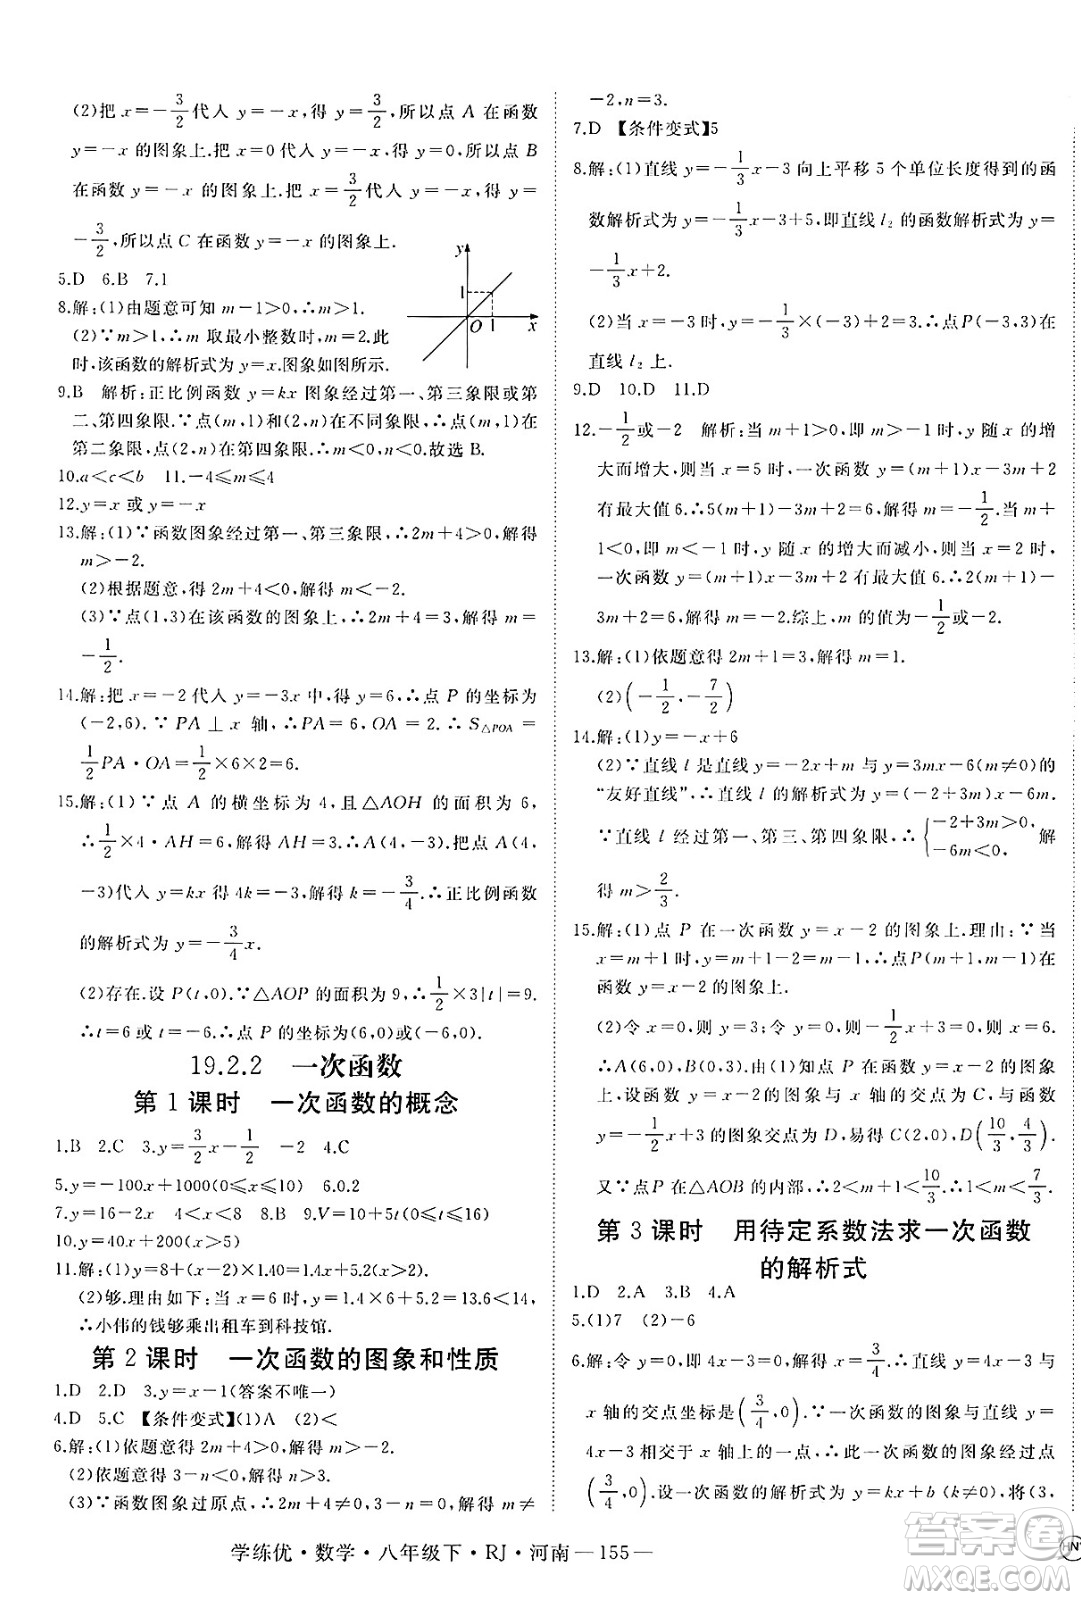 (2)把 x=-3/2代入 y=-x,得 y=3/2,所以点 A 在函数
y=-x 的图象上.把 x=3/2代入 y=-x,得 y=-3/2,所以点 B
在函数 y=-x 的图象上.把 x=3/2代入 y=-x,得 y=
-3/2,所以点 C 在函数 y=-x 的图象上.
5.D 6.B 7.1
8.解:(1)由题意可知 m-1>0,∴m>1.
(2)∵m>1,∴m 取最小整数时,m=2,此
时,该函数的解析式为 y=x.图象如图所示.
y
1
O 1 x
9.B 解析:正比例函数 y=kx 图象经过第一、第三象限或第
二、第四象限.∵点(m,1)和(2,n)在不同象限,∴点(m,1)在
第二象限,点(2,n)在第四象限.∴m<0,n<0.故选 B.
10.a<c<b 11.-4≤m≤4
12.y=x 或 y=-x
13.解:(1)∵函数图象经过第一、第三象限,∴2m+4>0,解得
m>-2.
(2)根据题意,得 2m+4<0,解得 m<-2.
(3)∵点(1,3)在该函数的图象上,∴2m+4=3,解得 m=
-1/2.
14.解:把 x=-2代入 y=-3x 中,得 y=6,∴点 P 的坐标为
(-2,6).∵PA⊥x 轴,∴PA=6,OA=2.∴S△POA=
1/2PA·OA=1/2×6×2=6.
15.解:(1)∵点 A 的横坐标为 4,且△AOH 的面积为 6,
∴1/2×4·AH=6,解得 AH=3.∴点 A(4,-3).把 A(4,
-3)代入 y=kx 得 4k=-3,解得 k=-3/4.∴正比例函数
的解析式为 y=-3/4x.
(2)存在.设 P(t,0).∵△AOP 的面积为 9,∴1/2×3|t|=9.
∴t=6 或 t=-6.∴点 P 的坐标为(6,0)或(-6,0).
19.2.2 一次函数
第 1 课时 一次函数的概念
1.B 2.C 3.y=3/2x-1/2 -2 4.C
5.y=-100x+1000(0≤x≤10) 6.0.2
7.y=16-2x 4<x<8 8.B 9.V=10-0.05t(0≤t≤200)
10.y=40x+200(x>5)
11.解:(1)y=8+(x-3)×1.3=1.3x+4.1(x≥3).
(2)够.理由如下:当 x=6 时,y=1.3×6+4.1=11.9<15,
∴小伟的钱够乘出租车到科技馆.
第 2 课时 一次函数的图象和性质
1.D 2.D 3.y=x-1(答案不唯一)
4.D 5.C 【条件变式】(1)A (2)<
6.解:(1)依题意得 2m+4>0,解得 m>-2.
(2)依题意得 3-n<0,解得 n>3.
(3)∵函数图象过原点,∴2m+4≠0,3-n=0,解得 m≠
-2,n=3.
7.D 【条件变式】5
8.解:(1)直线 y=-1/3x-3 向上平移 5 个单位长度得到的函
数解析式为 y=-1/3x-3+5,即直线 l₂ 的函数解析式为 y=
-1/3x+2.
(2)当 x=-3 时,y=-1/3×(-3)+2=3.∴点 P(-3,3)在
直线 l₂ 上.
9.D 10.D 11.D
12.-1/2或-2 解析:当 m+1>0,即 m>-1 时,y 随 x 的增
大而增大,则当 x=5 时,一次函数 y=(m+1)x-3m+2
有最大值 6.∴5(m+1)-3m+2=6,解得 m=-1/2.当 m+1<
0,即 m<-1 时,y 随 x 的增大而减小,则当 x=2 时,
一次函数 y=(m+1)x-3m+2 有最大值 6.∴2(m+1)-
3m+2=6,解得 m=-2.综上,m 的值为-1/2或-2.
13.解:(1)依题意得 2m+1=3,解得 m=1.
(2)(-1/2,-7/2)
14.解:(1)y=-x+6
(2)∵直线 l 是直线 y=-2x+m 与 y=3mx-6(m≠0)的
“友好直线”,∴直线 l 的解析式为 y=(-2+3m)x-6m.
∵直线 l 经过第一、第三、第四象限,∴{-2+3m>0, -6m<0. 解
得 m>2/3.
15.解:(1)点 P 在一次函数 y=x-2 的图象上.理由:∵当
x=m+1 时,y=m+1-2=m-1,∴点 P(m+1,m-1)在
函数 y=x-2 的图象上.
(2)令 x=0,则 y=3;令 y=0,则-1/2x+3=0,解得 x=6.
∴A(6,0),B(0,3).∵点 P 在一次函数 y=x-2 的图象
上,设一次函数 y=x-2的图象与 x 轴的交点为 C,与
y=-1/2x+3 的图象交点为 D,易得 C(2,0),D(10/3,4/3).
又∵点P 在△AOB 的内部,∴2<m+1<10/3.∴1<m<7/3.
第 3 课时 用待定系数法求一次函数
的解析式
1.D 2.A 3.B 4.A
5.(1)7 (2)-6
6.解:令 y=0,即 4x-3=0,解得 x=3/4.∴直线 y=4x-3 与
x 轴的交点坐标是(3/4,0).∵一次函数的图象与直线 y=
4x-3 相交于 x 轴上的一点,∴此一次函数的图象经过点
(3/4,0).设一次函数的解析式为 y=kx+b (k≠0),将(3,
学练优·数学·八年级下·RJ·河南—155—
HN
答案圈
MXQE.COM